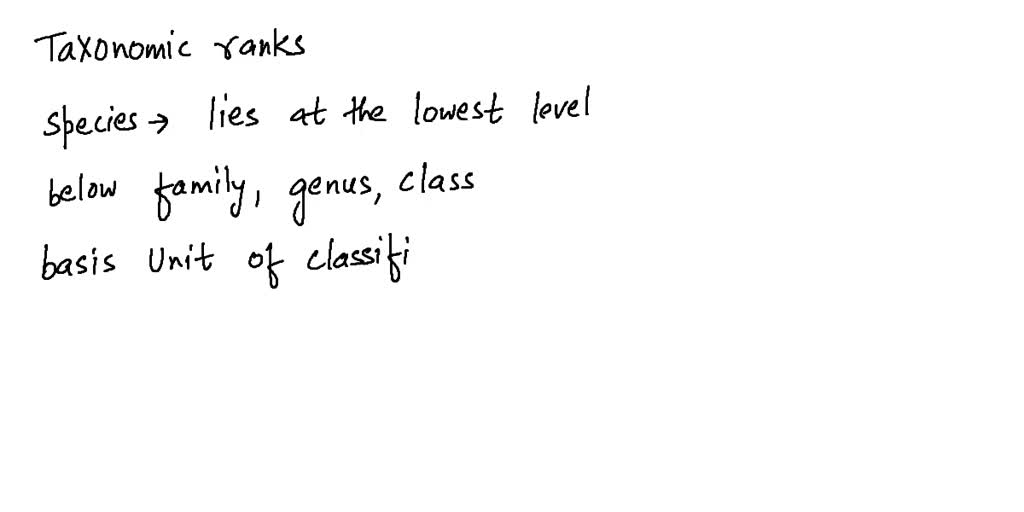 Taxonomic ranks
Species → lies at the lowest level
below family, genus, class
basis Unit of classifi